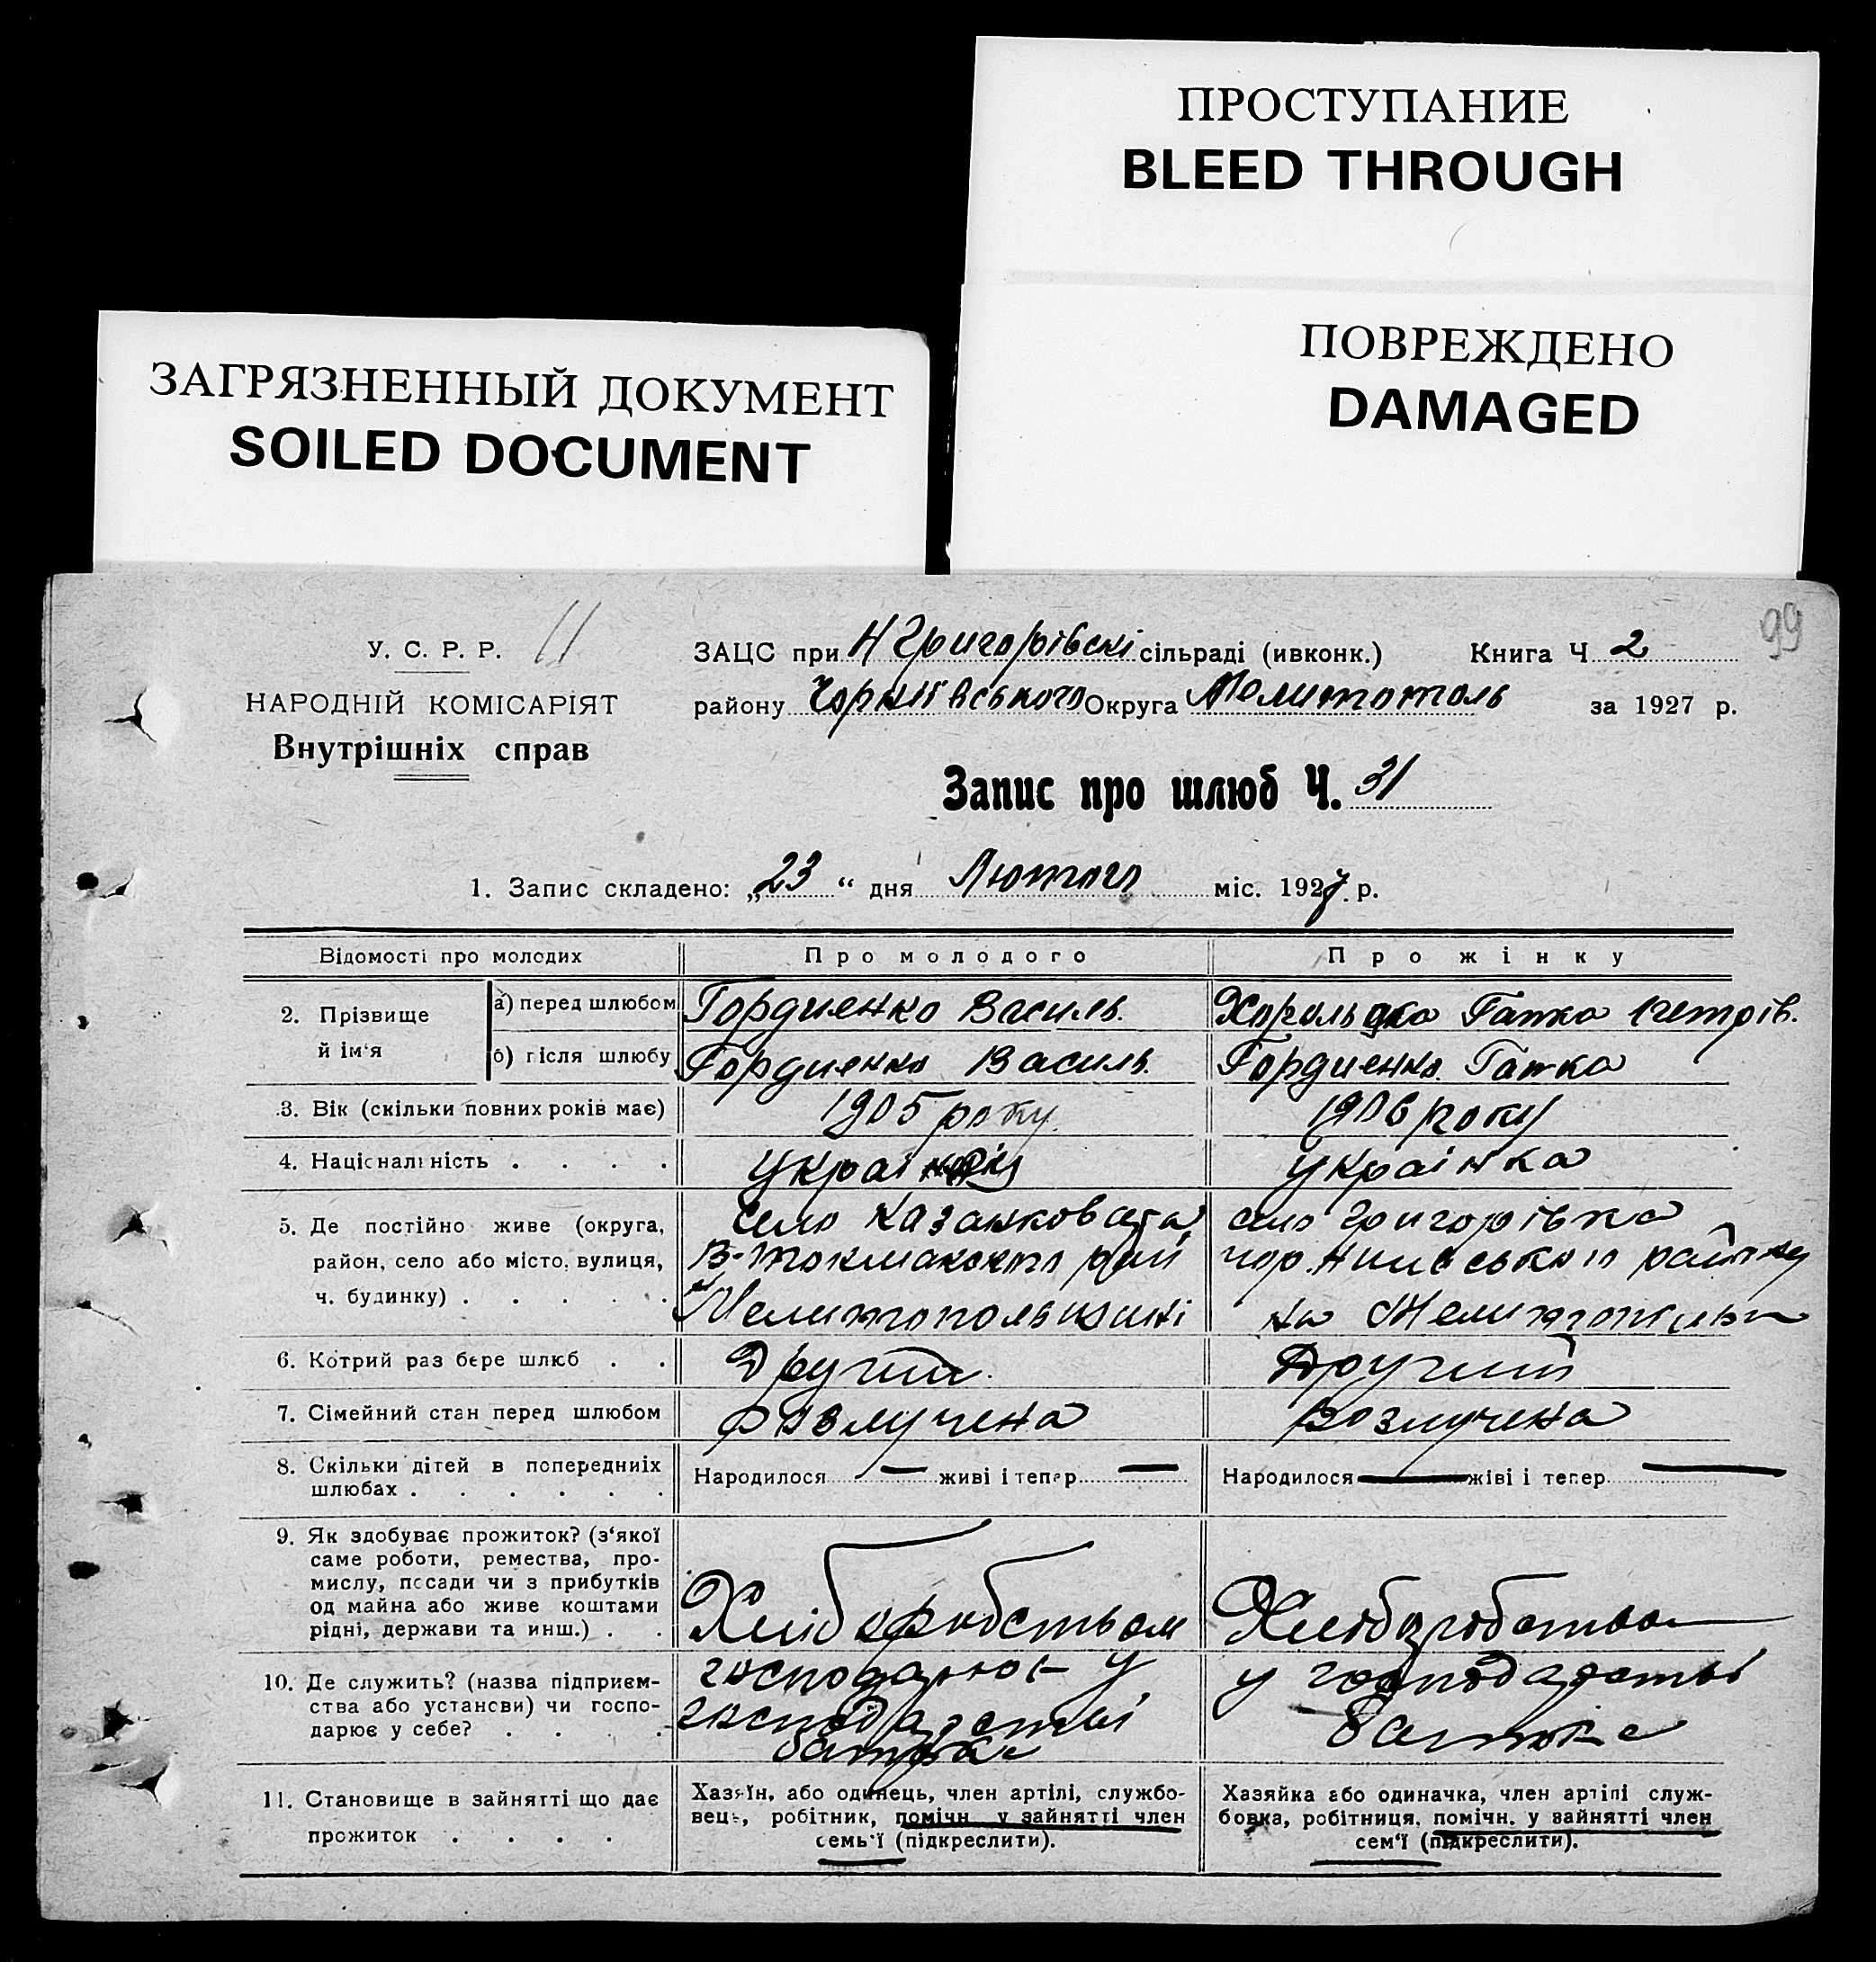 ПРОСТУПАНИЕ
BLEED THROUGH
ПОВРЕЖДЕНО
DAMAGED
ЗАГРЯЗНЕННЫЙ ДОКУМЕНТ
SOILED DOCUMENT
99
У. С. Р. Р. 11
НАРОДНІЙ КОМІСАРІЯТ
Внутрішніх справ
ЗАЦС при Н Григорівскі сільраді (ивконк.) Книга Ч 2
району Округа Мелитополь за 1927 р.
Запис про шлюб Ч. 31
1. Запис складено: „23“ дня Лютого міс. 1927. р.
Відомості про молодих
Про молодого
Про жінку
2. Прізвище й ім'я
а) перед шлюбом
Гордиенко Василь.
Гапка Петрів.
б) після шлюбу
Гордиенко Василь.
Гордиенко Гапка
3. Вік (скільки повних років має)
1905 року
1906 року
4. Національність . . . .
українка
5. Де постійно живе (округа,
район, село або місто, вулиця,
ч. будинку) . . . . .
село Казанковата
В-Токмакского рай
Мелитопольщині
село Григорівка
району
на
6. Котрий раз бере шлюб . .
Другий.
Другий
7. Сімейний стан перед шлюбом
розлучена
розлучена
8. Скільки дітей в попередниіх
шлюбах . . . . . .
Народилося — живі і тепер —
Народилося — жіві і тепер —
9. Як здобуває прожиток? (з'якої
саме роботи, ремества, про-
мислу, посади чи з прибутків
од майна або живе коштами
рідні, держави та инш.) . .
Хліборобством
10. Де служить? (назва підприєм-
ства або установи) чи госпо-
дарює у себе? . . . .
у
господарстві
батька
у господарстві
батька
11. Становище в зайнятті що дає
прожиток . . . .
Хазяїн, або одинець, член артілі, службо-
вець, робітник, помічн. у зайнятті член
семь'ї (підкреслити).
Хазяйка або одиначка, член артілі служ-
бовка, робітниця, помічн. у зайнятті член
сем'ї (підкреслити).